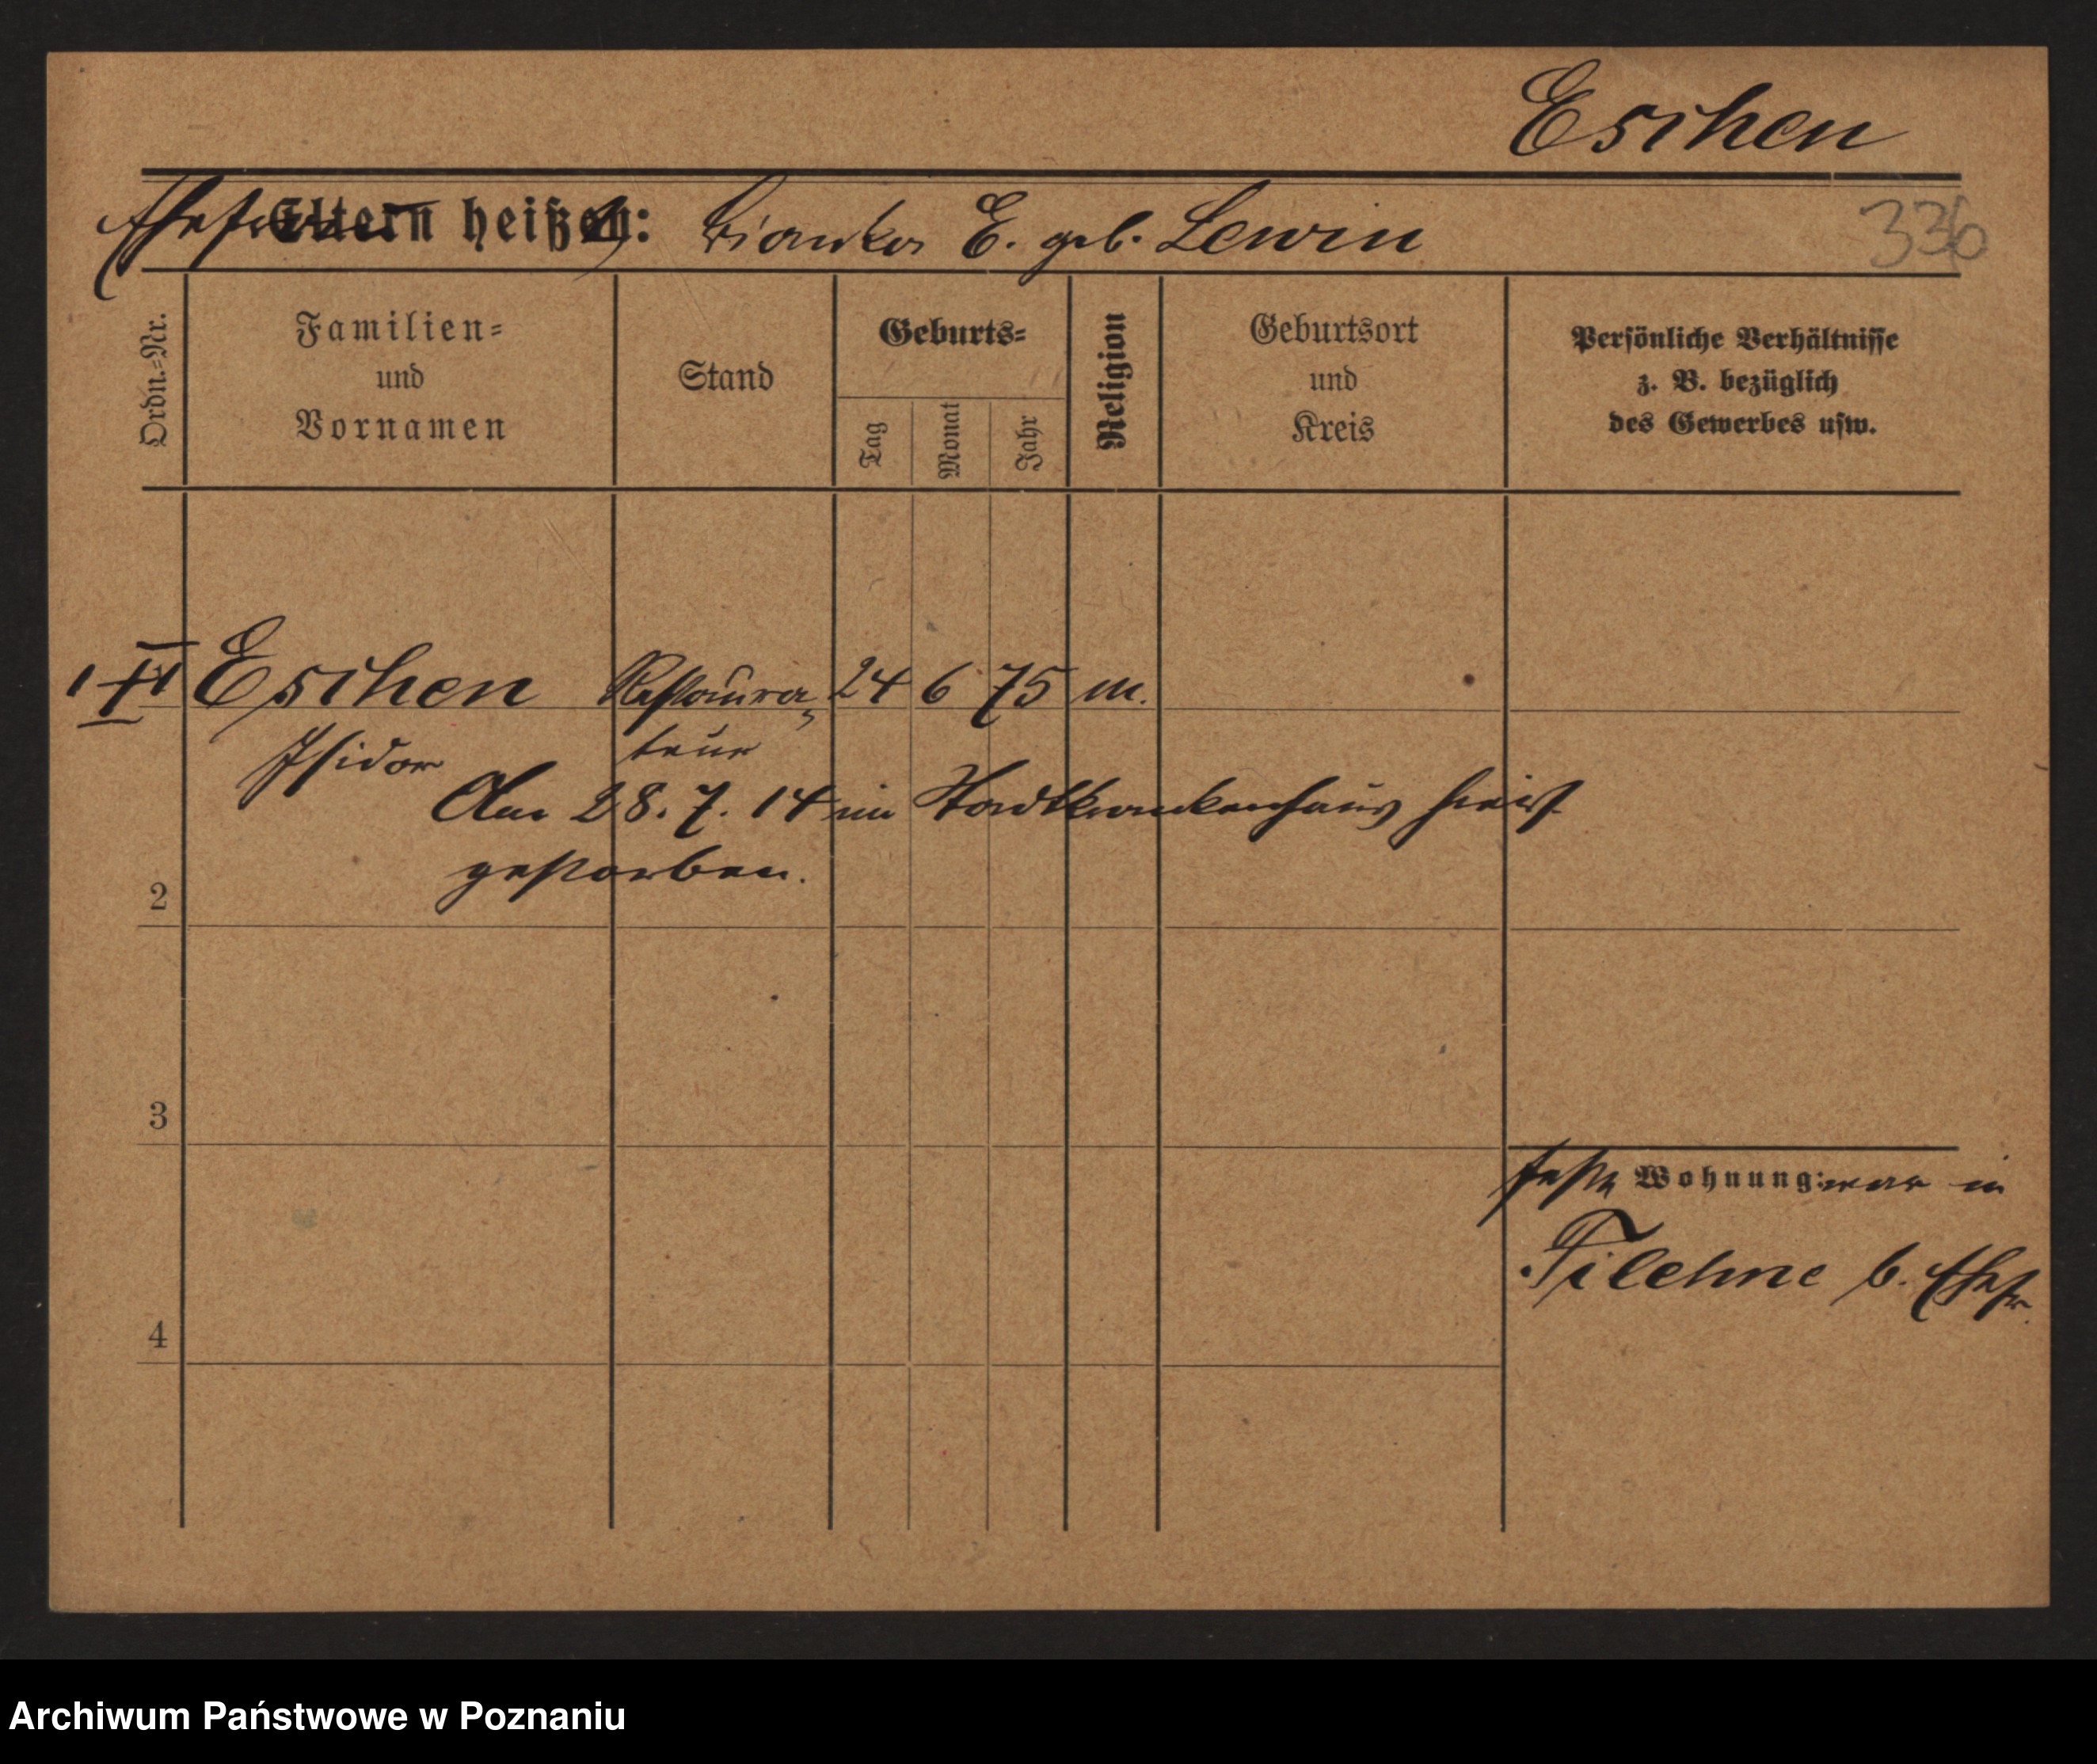 Eschen
Ehefrau Eltern heißen: Bianka E. geb. Lewin
336
Ordn.=Nr.
Familien=
und
Vornamen
Stand
Geburts=
Tag
Monat
Jahr
Religion
Geburtsort
und
Kreis
Persönliche Verhältnisse
z. B. bezüglich
des Gewerbes usw.
1 Eschen Restaura= 24 6 75 m.
Isidor teur
Am 28. 7. 14 im Stadtkrankenhaus hierst.
gestorben.
2
3
feste Wohnung: war in
Filehne b. Ehefr.
4
Archiwum Państwowe w Poznaniu